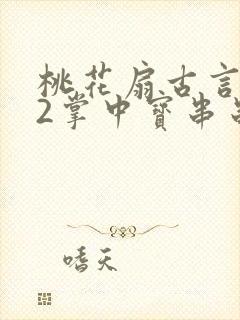 桃花扇古言
2掌中寶串
嗜天